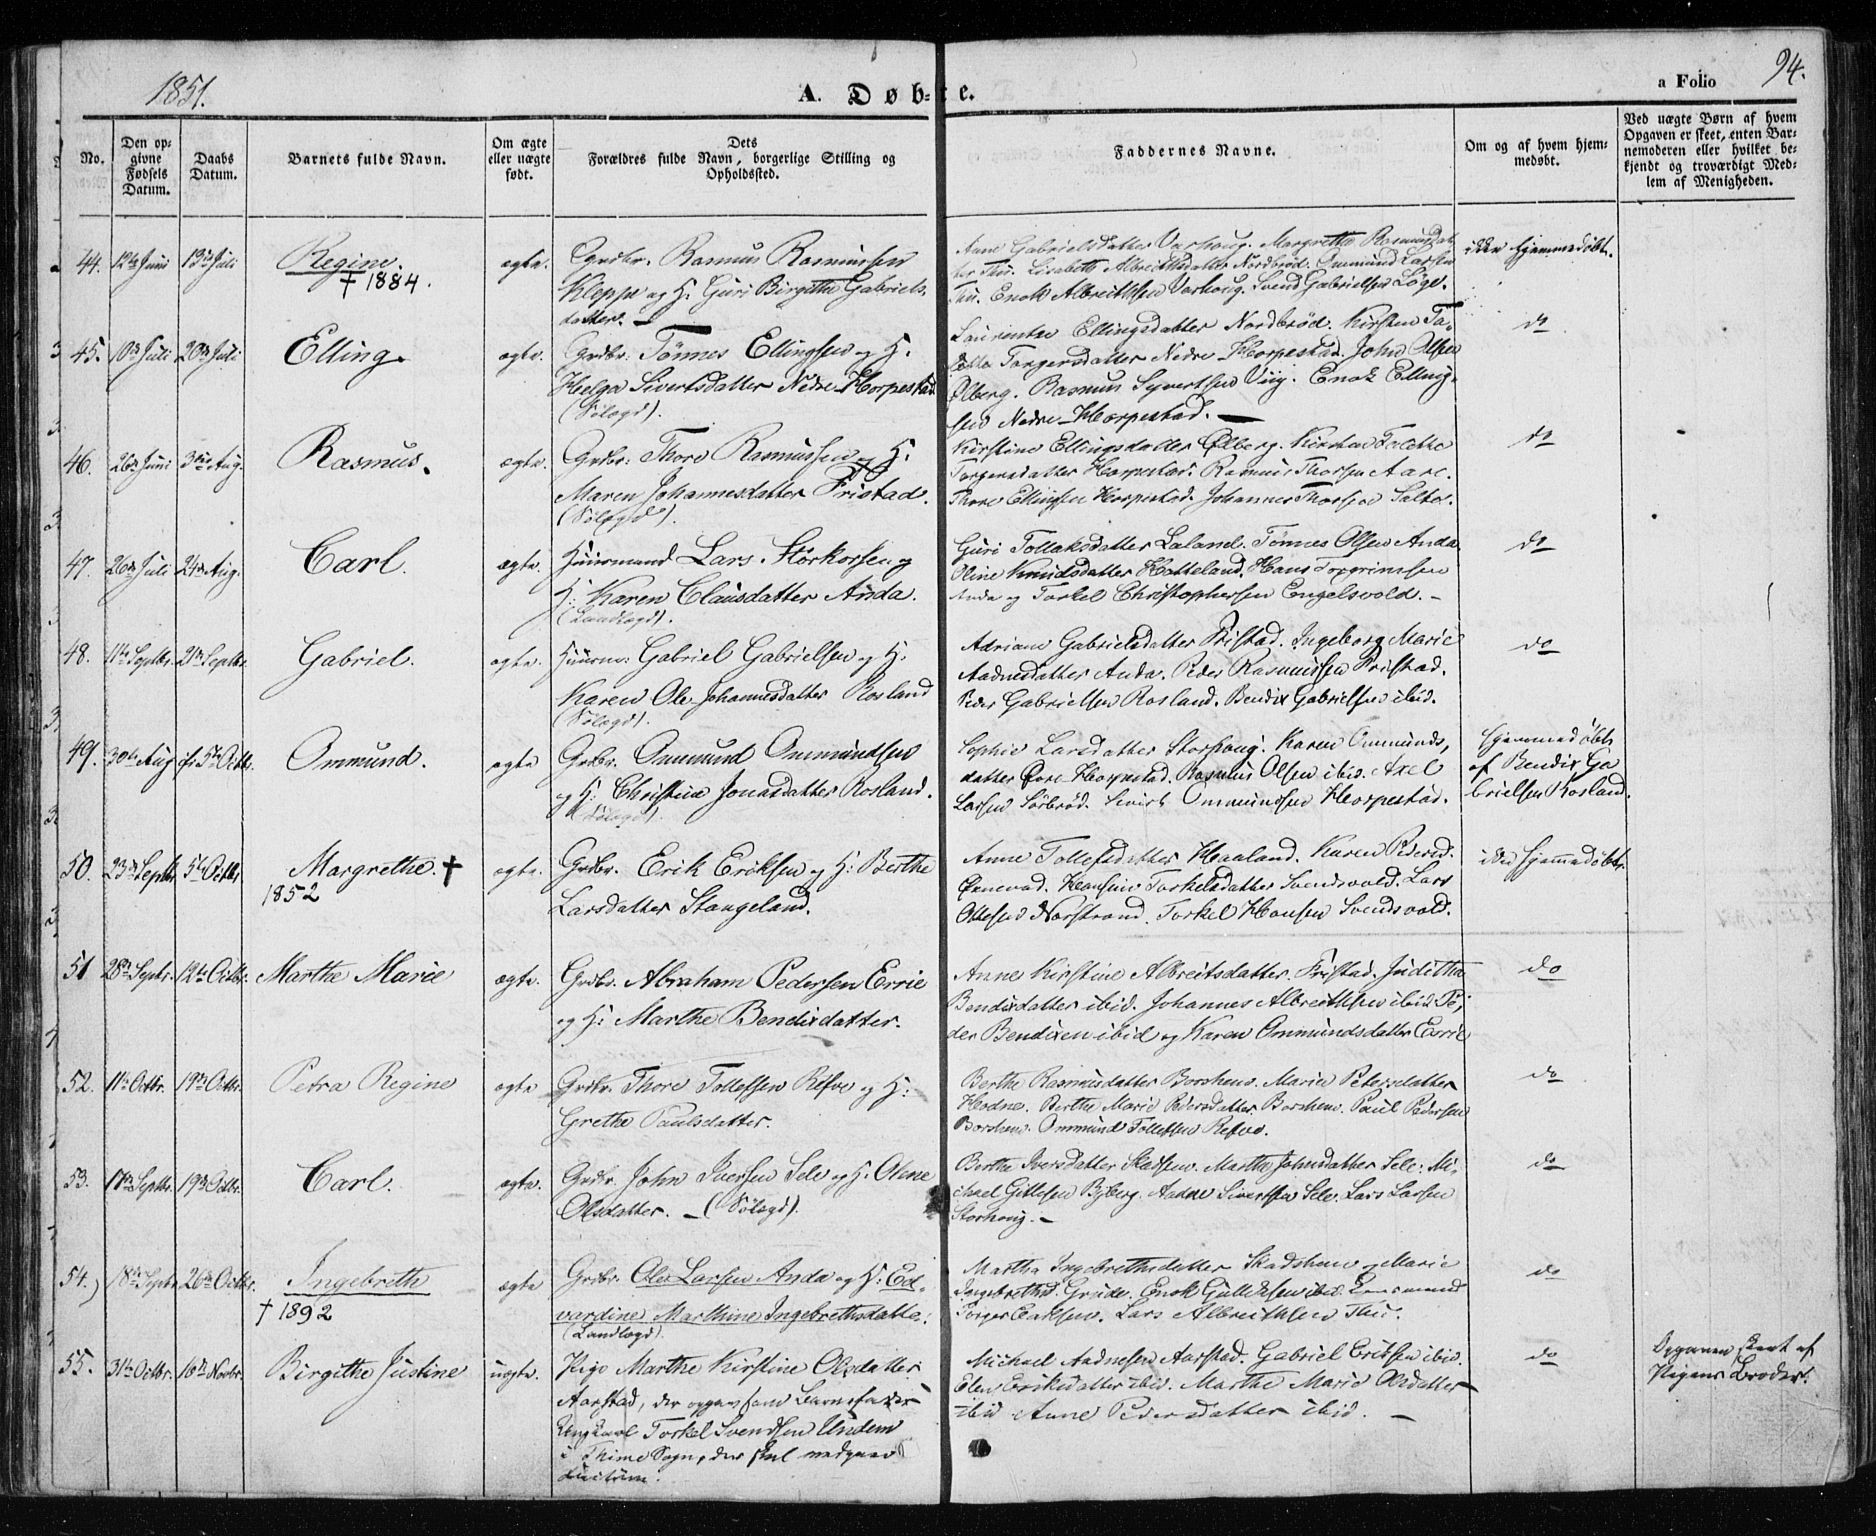 1851.
A. Døbte.
a Folio 94.
No.
Den opgivne Fødsels Datum.
Daabs Datum.
Barnets fulde Navn.
Om ægte eller uægte født.
Dets Forældres fulde Navn, borgerlige Stilling og Opholdssted.
Faddernes Navne.
Om og af hvem hjemmedøbt.
Ved uægte Børn af hvem Opgaven er skeet, enten Barnemoderen eller hvilket bekjendt og troværdigt Medlem af Menigheden.
44. 12te Juni 13de Juli Regine. ægte. Grdbr. Rasmus Rasmussen
† 1884.
Kleppe og H. Guri Birgithe Gabriels-
datter. —
Anne Gabrielsdatter Varhoug. Margrethe Rasmusdat-
ter Thu. Lisabeth Albreithsdatter Nordbrød. Ommund Larsen
Thu. Enok Albreithsen Varhoug. Svend Gabrielsen Löge.
ikke hjemmedøbt.
45. 10de Juli 20de Juli Elling. ægte. Grdbr. Tönnes Ellingsen og H.
Helga Sivertsdatter Nedre Horpestad
(Sölægd).
Laurentze Ellingsdatter Nordbrød. Kirsten Ta-
letta Torgersdatter Nedre Horpestad. John Olsen
Ølberg. Rasmus Syvertsen Viig. Enok Elling-
sen Nedre Horpestad. —
do
46. 26de Juni 3die Aug. Rasmus. ægte. Grdbr: Thore Rasmussen og H:
Maren Johannesdatter Fristad.
(Sölægd).
Kirstine Ellingsdatter Ølberg. Kirsten Talette
Torgersdatter Horpestad. Rasmus Thorsen Aare.
Thore Ellingsen Horpestad. Johannes Thorsen Salte.
do
47. 26de Juli 24de Aug. Carl. ægte. Huusmand Lars Störkorsen og
H: Karen Clausdatter Anda.
(Landlægd).
Guri Tollaksdatter Laland. Tönnes Olsen Anda.
Oline Knudsdatter Hatteland. Hans Torgrimsen
Anda og Torkel Christophersen Engelsvold. —
do
48. 11te Septbr. 21de Septbr. Gabriel. ægte. Huusm. Gabriel Gabrielsen og H:
Karen Ole Johannesdatter Rosland
(Sölægd).
Adriane Gabrielsdatter Fristad. Ingeborg Marie
Aadnesdatter Anda. Peder Rasmussen Fristad.
Peder Gabrielsen Rosland. Bendix Gabrielsen ibid.
do
49. 30te Aug. 5te Octbr. Ommund. ægte Grdbr. Ommund Ommundsen
og H: Christine Jonasdatter Rosland.
(Sölægd).
Sophie Larsdatter Storhoug. Karen Ommunds-
datter Øvre Horpestad. Rasmus Olsen ibid. Axel
Larsen Sörbrød. Sivert Ommundsen Horpestad.
Hjemmedøbt
af Bendix Ga
brielsen Rosland.
50. 23de Septbr. 5te Octbr. Margrethe. † ægte. Grdbr. Erik Eriksen og H: Berthe
1852
Larsdatter Stangeland.
Anne Tollefsdatter Haaland. Karen Pedersd.
Ørnevad. Hansine Torkelsdatter Svendsvold. Lars
Ottesen Norstrand. Torkel Hansen Svendsvold.
ikke hjemmedøbt.
51 28de Septr. 12te Octbr. Marthe Marie ægte. Grdbr. Abraham Pedersen Errie
og H: Marthe Bendixdatter.
Anne Kirstine Albreitsdatter. Fristad. Juditha
Bendixdatter ibid. Johannes Albreithsen ibid. Pe-
der Bendixen ibid og Karen Ommundsdatter Errie
do
52. 11te Octbr. 19de Octbr. Petra Regine ægte Grdbr. Thore Tollefsen Refve og H:
Grethe Paulsdatter.
Berthe Rasmusdatter Borshem. Marie Petersdatter
Hodne. Berthe Marie Pedersdatter Borshem. Paul Pedersen
Borshem. Ommund Tollefsen Refve.
do
53. 17de Septbr. 19de Octbr. Carl. ægte. Grdbr. John Iversen Sele og H: Oline
Olsdatter. — (Sölægd).
Berthe Iversdatter Stadsem. Marthe Johnsdatter Sele. Mi-
chael Gitlesen Byberg. Aadne Sivertsen Sele. Lars Larsen
Storhoug. —
do
54. 18de Septbr. 26de Octbr. Ingebreth ægte Grdbr. Ole Larsen Anda og H: Ed-
† 1892
vardine Marthine Ingebrethsdatter.
(Landlægd).
Martha Ingebrethsdatter Skadshem og Marie
Ingebrethsd. Grude. Enok Gulliksen ibid.
Torger Eriksen. Lars Albreithsen Thu.
do
55. 31te Octbr. 16de Novbr. Birgithe Justine uægte. Pige Marthe Kirstine Olsdatter
Aarstad, der opgav som Barnefader
Ungkarl Torkel Svendsen Undem
i Thime Sogn, der skal nedgaae
Michael Aadnesen Aarstad. Gabriel Eriksen ibid.
Elen Eriksdatter ibid. Marthe Marie Olsdatter
ibid Anne Pedersdatter ibid. —
do
Opgaven skeet af
Pigens Broder.